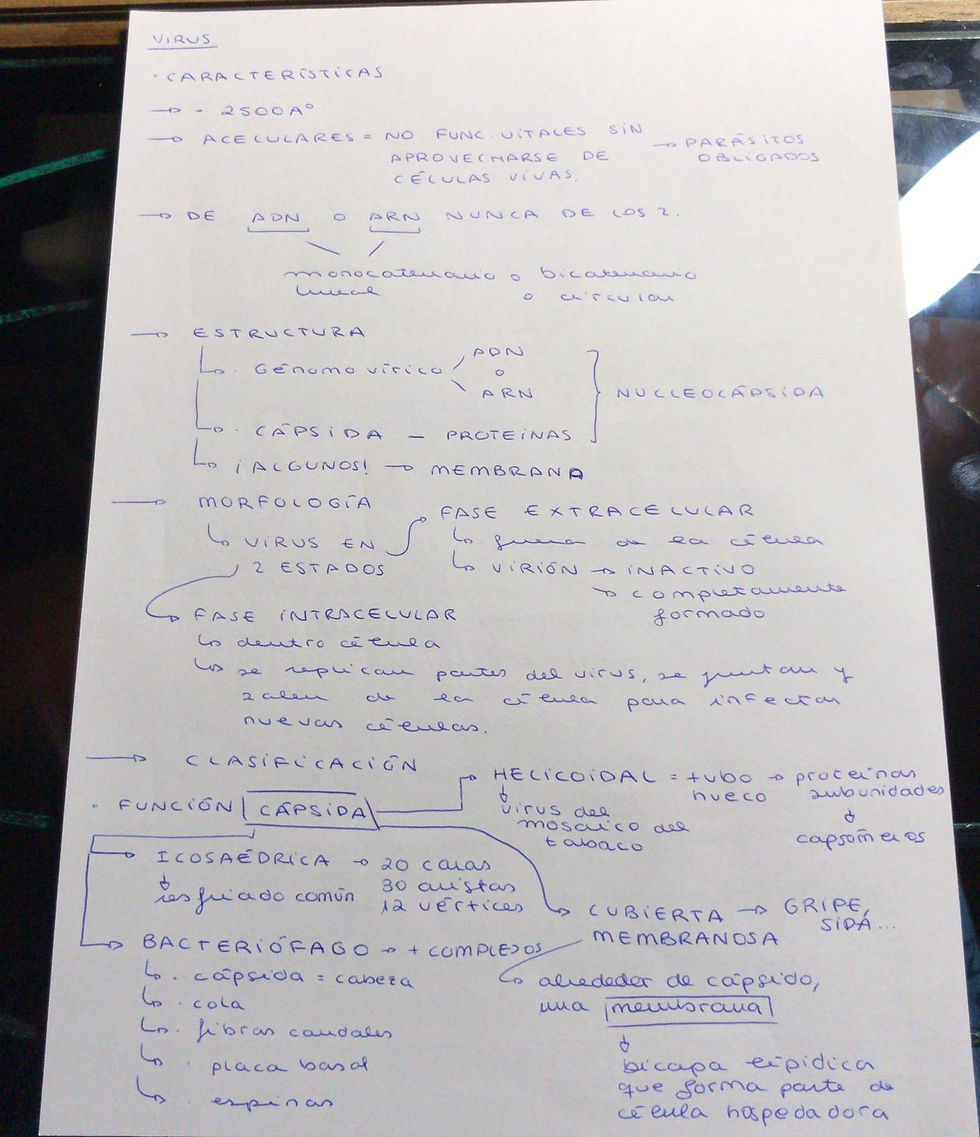 VIRUS
· CARACTERÍSTICAS
→ - 2500Aº
→ ACELULARES = NO FUNC. VITALES SIN
APROVECHARSE DE
CÉLULAS VIVAS.
→ PARÁSITOS
OBLIGADOS
→ DE ADN O ARN. NUNCA DE LOS 2.
monocatenario o bicatenario
lineal o circular
→ ESTRUCTURA
↳ · Génomo vírico
ADN
o
ARN
↳ · CÁPSIDA – PROTEÍNAS
} NUCLEOCÁPSIDA
↳ ¡ALGUNOS! → MEMBRANA
→ MORFOLOGÍA
↳ VIRUS EN
2 ESTADOS
FASE EXTRACELULAR
↳ fuera de la célula
↳ VIRIÓN → INACTIVO
→ completamente
formado
FASE INTRACELULAR
↳ dentro célula
↳ se replican partes del virus, se juntan y
salen de la célula para infectar
nuevas células.
→ CLASIFICACIÓN
· FUNCIÓN CÁPSIDA
HELICOIDAL = tubo → proteínas
hueco subunidades
↓
capsómeros
↓
virus del
mosaico del
tabaco
→ ICOSAÉDRICA → 20 caras
30 aristas
12 vértices
↓
resfriado común
→ CUBIERTA → GRIPE,
MEMBRANOSA SIDA...
↳ alrededor de cápsido,
una membrana
↓
bicapa lipídica
que forma parte de
célula hospedadora
→ BACTERIÓFAGO → + COMPLEJOS
↳ · cápsida = cabeza
↳ · cola
↳ · fibras caudales
↳ · placa basal
↳ · espinas